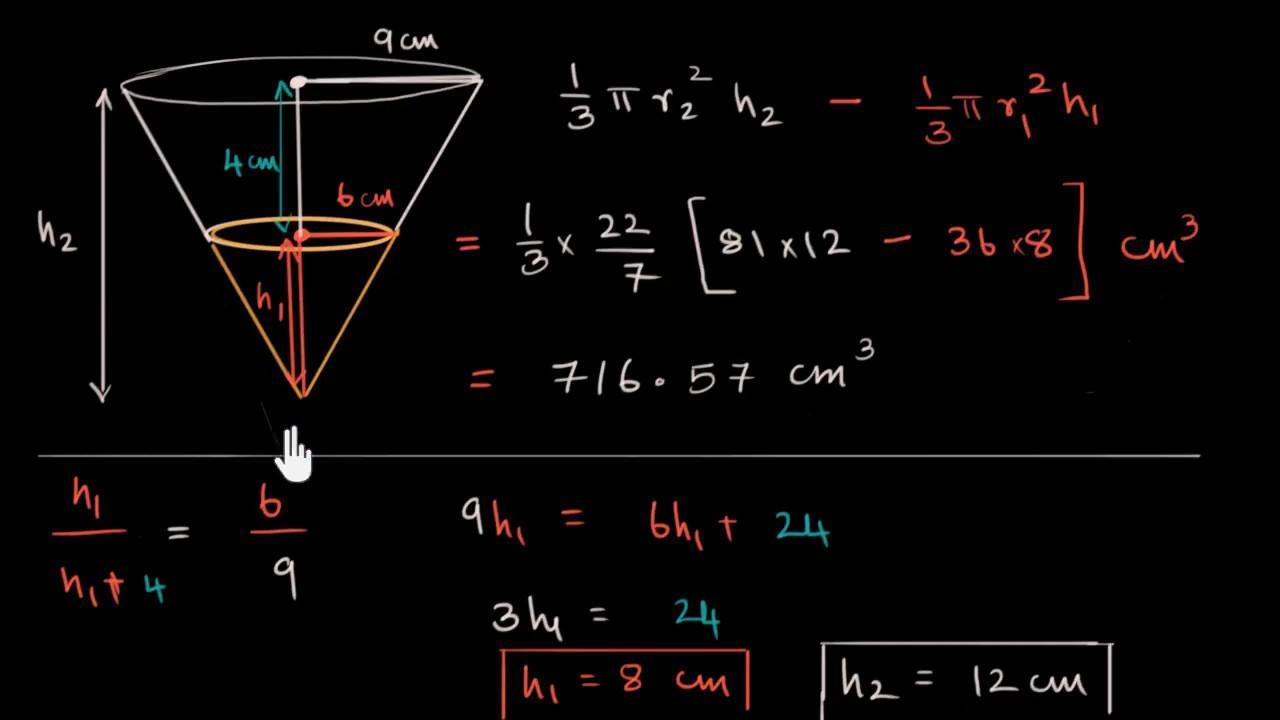 9 cm
4 cm
6 cm
h₂
h₁
1/3 π r₂² h₂ − 1/3 π r₁² h₁
= 1/3 × 22/7 [81 × 12 − 36 × 8] cm³
= 716.57 cm³
h₁/(h₁ + 4) = 6/9
9h₁ = 6h₁ + 24
3h₁ = 24
h₁ = 8 cm
h₂ = 12 cm